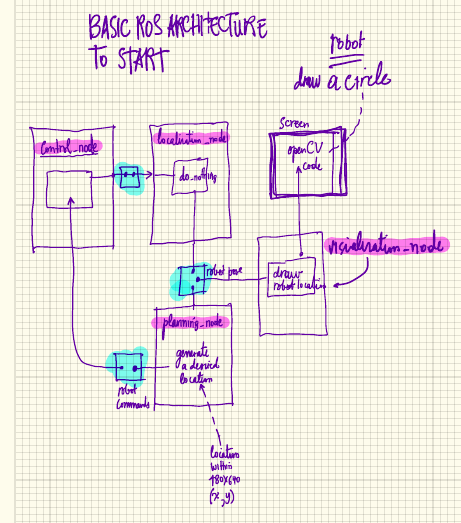 BASIC ROS ARCHITECTURE
TO START
robot
draw a circle
screen
openCV
code
control_node
localization_node
do_nothing
visualization_node
robot pose
draw
robot location
planning_node
generate
a desired
location
robot
commands
location
within
480x640
(x,y)